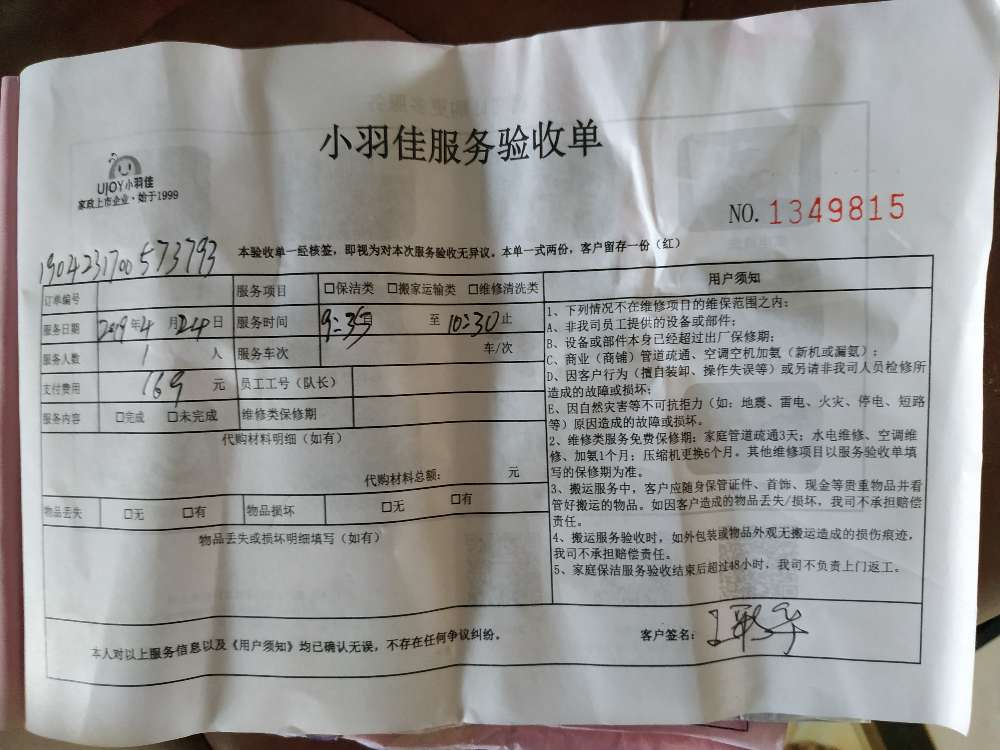 小羽佳服务验收单
UJOY小羽佳
家政上市企业·始于1999
NO. 1349815
本验收单一经核签，即视为对本次服务验收无异议。本单一式两份，客户留存一份（红）
1904231700573793
订单编号 服务项目 □保洁类 □搬家运输类 □维修清洗类
服务日期 2019年4月24日 服务时间 9:35 至 10:30止
服务人数 1 人 服务车次 车/次
支付费用 169 元 员工工号（队长）
服务内容 □完成 □未完成 维修类保修期
代购材料明细（如有）
代购材料总额： 元
物品丢失 □无 □有 物品损坏 □无 □有
物品丢失或损坏明细填写（如有）
用户须知
1、下列情况不在维修项目的维保范围之内：
A、非我司员工提供的设备或部件；
B、设备或部件本身已经超过出厂保修期；
C、商业（商铺）管道疏通、空调空机加氨（新机或漏氨）；
D、因客户行为（擅自装卸、操作失误等）或另请非我司人员检修所
造成的故障或损坏；
E、因自然灾害等不可抗拒力（如：地震、雷电、火灾、停电、短路
等）原因造成的故障或损坏。
2、维修类服务免费保修期：家庭管道疏通3天；水电维修、空调维
修、加氨1个月；压缩机更换6个月。其他维修项目以服务验收单填
写的保修期为准。
3、搬运服务中，客户应随身保管证件、首饰、现金等贵重物品并看
管好搬运的物品。如因客户造成的物品丢失/损坏，我司不承担赔偿
责任。
4、搬运服务验收时，如外包装或物品外观无搬运造成的损伤痕迹，
我司不承担赔偿责任。
5、家庭保洁服务验收结束后超过48小时，我司不负责上门返工。
本人对以上服务信息以及《用户须知》均已确认无误，不存在任何争议纠纷。
客户签名：